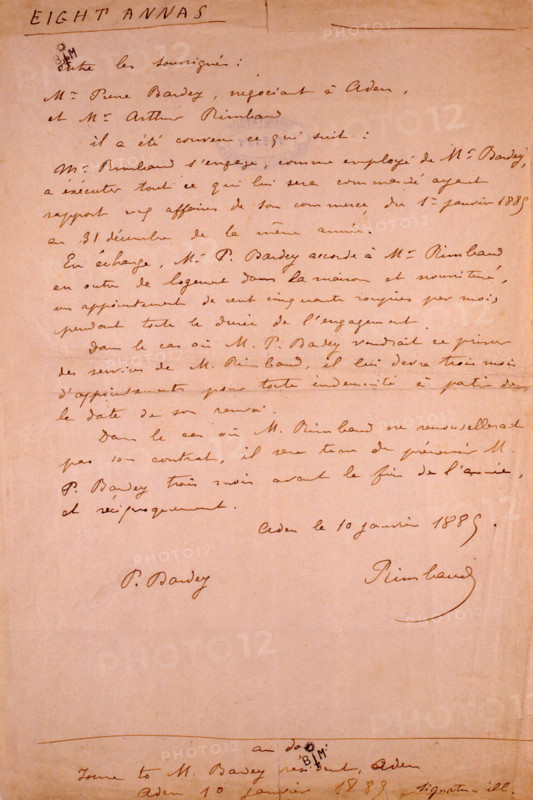 EIGHT ANNAS
BM
entre les soussignés :
Mr Pierre Bardey, négociant à Aden,
et Mr Arthur Rimbaud
il a été convenu ce qui suit :
Mr Rimbaud s'engage, comme employé de Mr Bardey,
a executer tout ce qui lui sera commandé ayant
rapport aux affaires de son commerce, du 1er janvier 1885
au 31 décembre de la même année.
En échange, Mr P. Bardey accorde à Mr Rimbaud
en outre de logement dans la maison et nourriture,
un appointement de cent cinquante roupies par mois
pendant toute la durée de l'engagement.
Dans le cas où M. P. Bardey voudrait se priver
des services de M. Rimbaud, il lui devra trois mois
d'appointements pour toute indemnité à partir de
la date de son renvoi.
Dans le cas où M. Rimbaud ne renouvellerait
pas son contrat, il sera tenu de prévenir M.
P. Bardey trois mois avant la fin de l'année,
et réciproquement.
Aden le 10 janvier 1885.
P. Bardey
Rimbaud
au dos :
BM
to M. Bardey résident, Aden
Aden 10 janvier 1885 signature ill.
PHOTO12